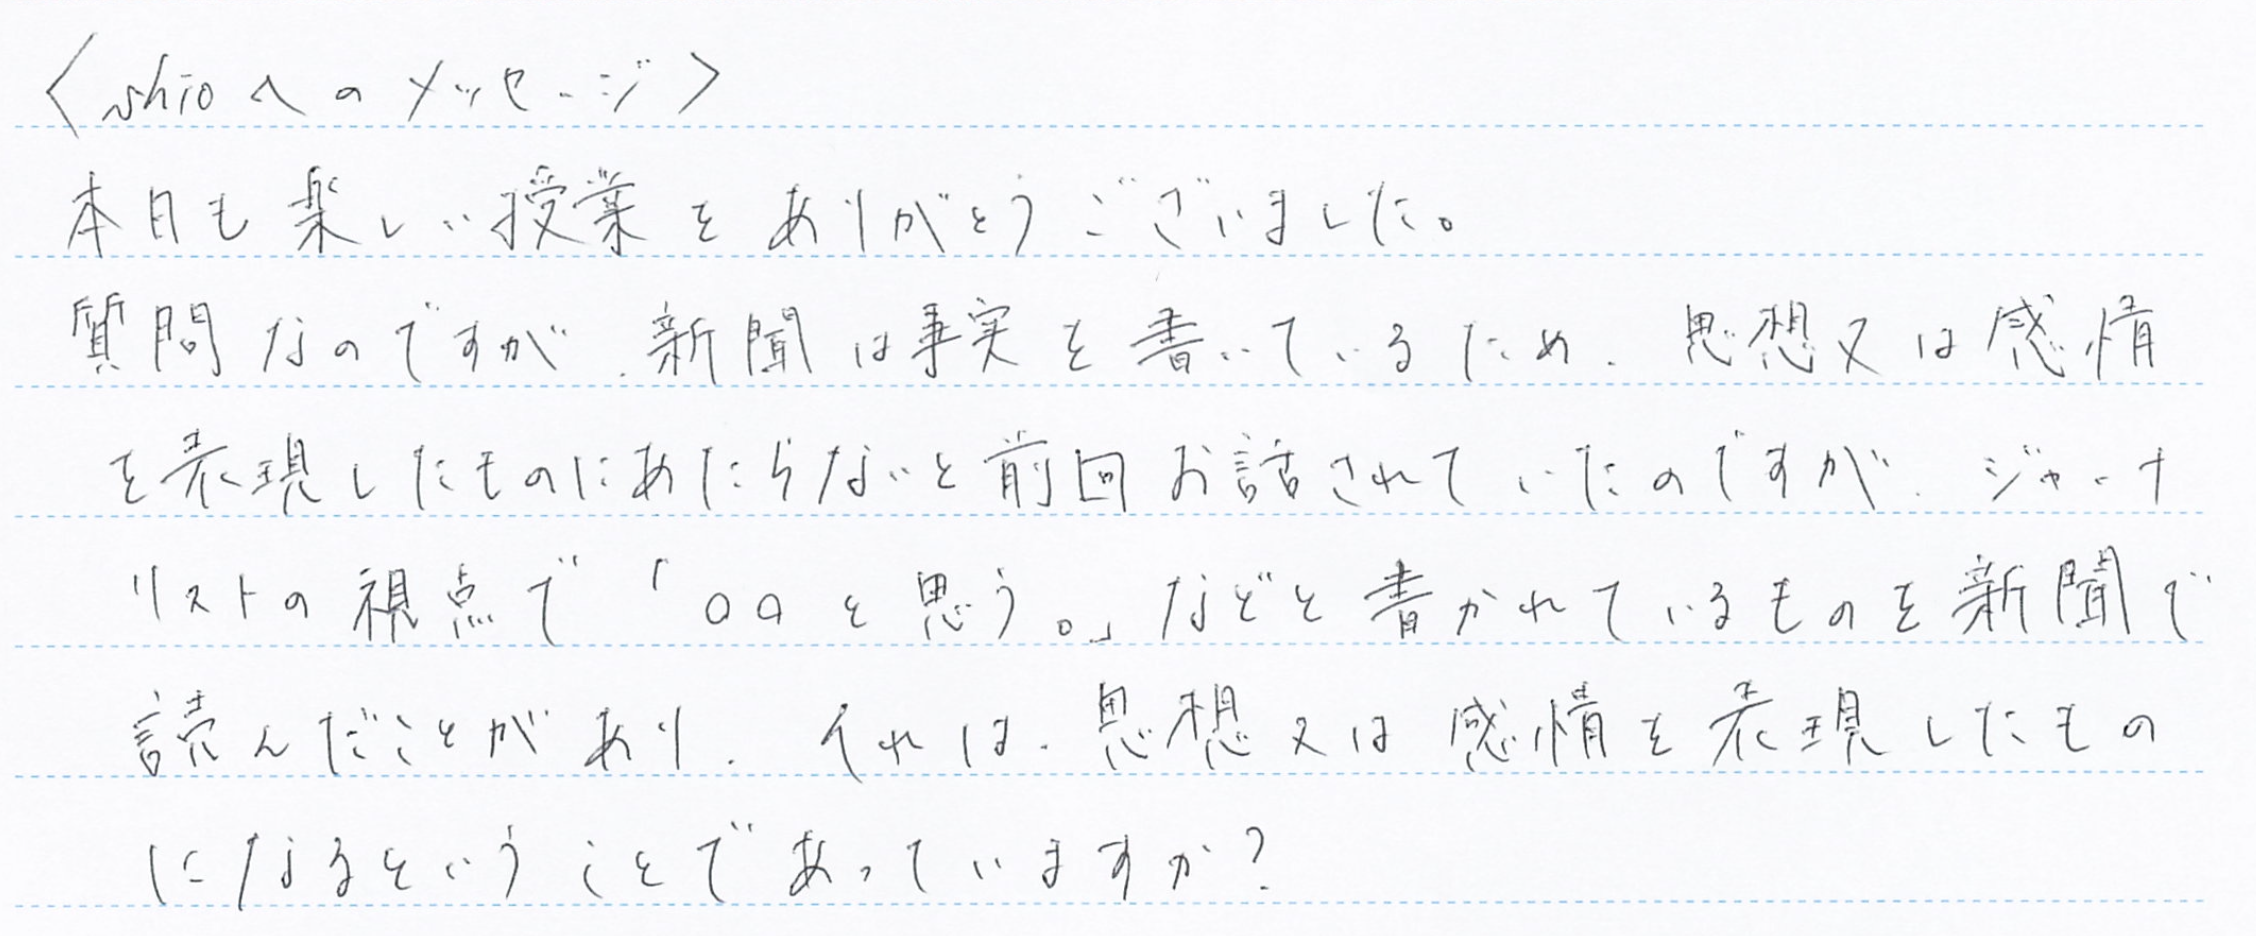 〈shioへのメッセージ〉
本日も楽しい授業をありがとうございました。
質問なのですが、新聞は事実を書いているため、思想又は感情
を表現したものにあたらないと前回お話されていたのですが、ジャーナ
リストの視点で「○○と思う。」などと書かれているものを新聞で
読んだことがあり、それは、思想又は感情を表現したもの
になるということであっていますか?